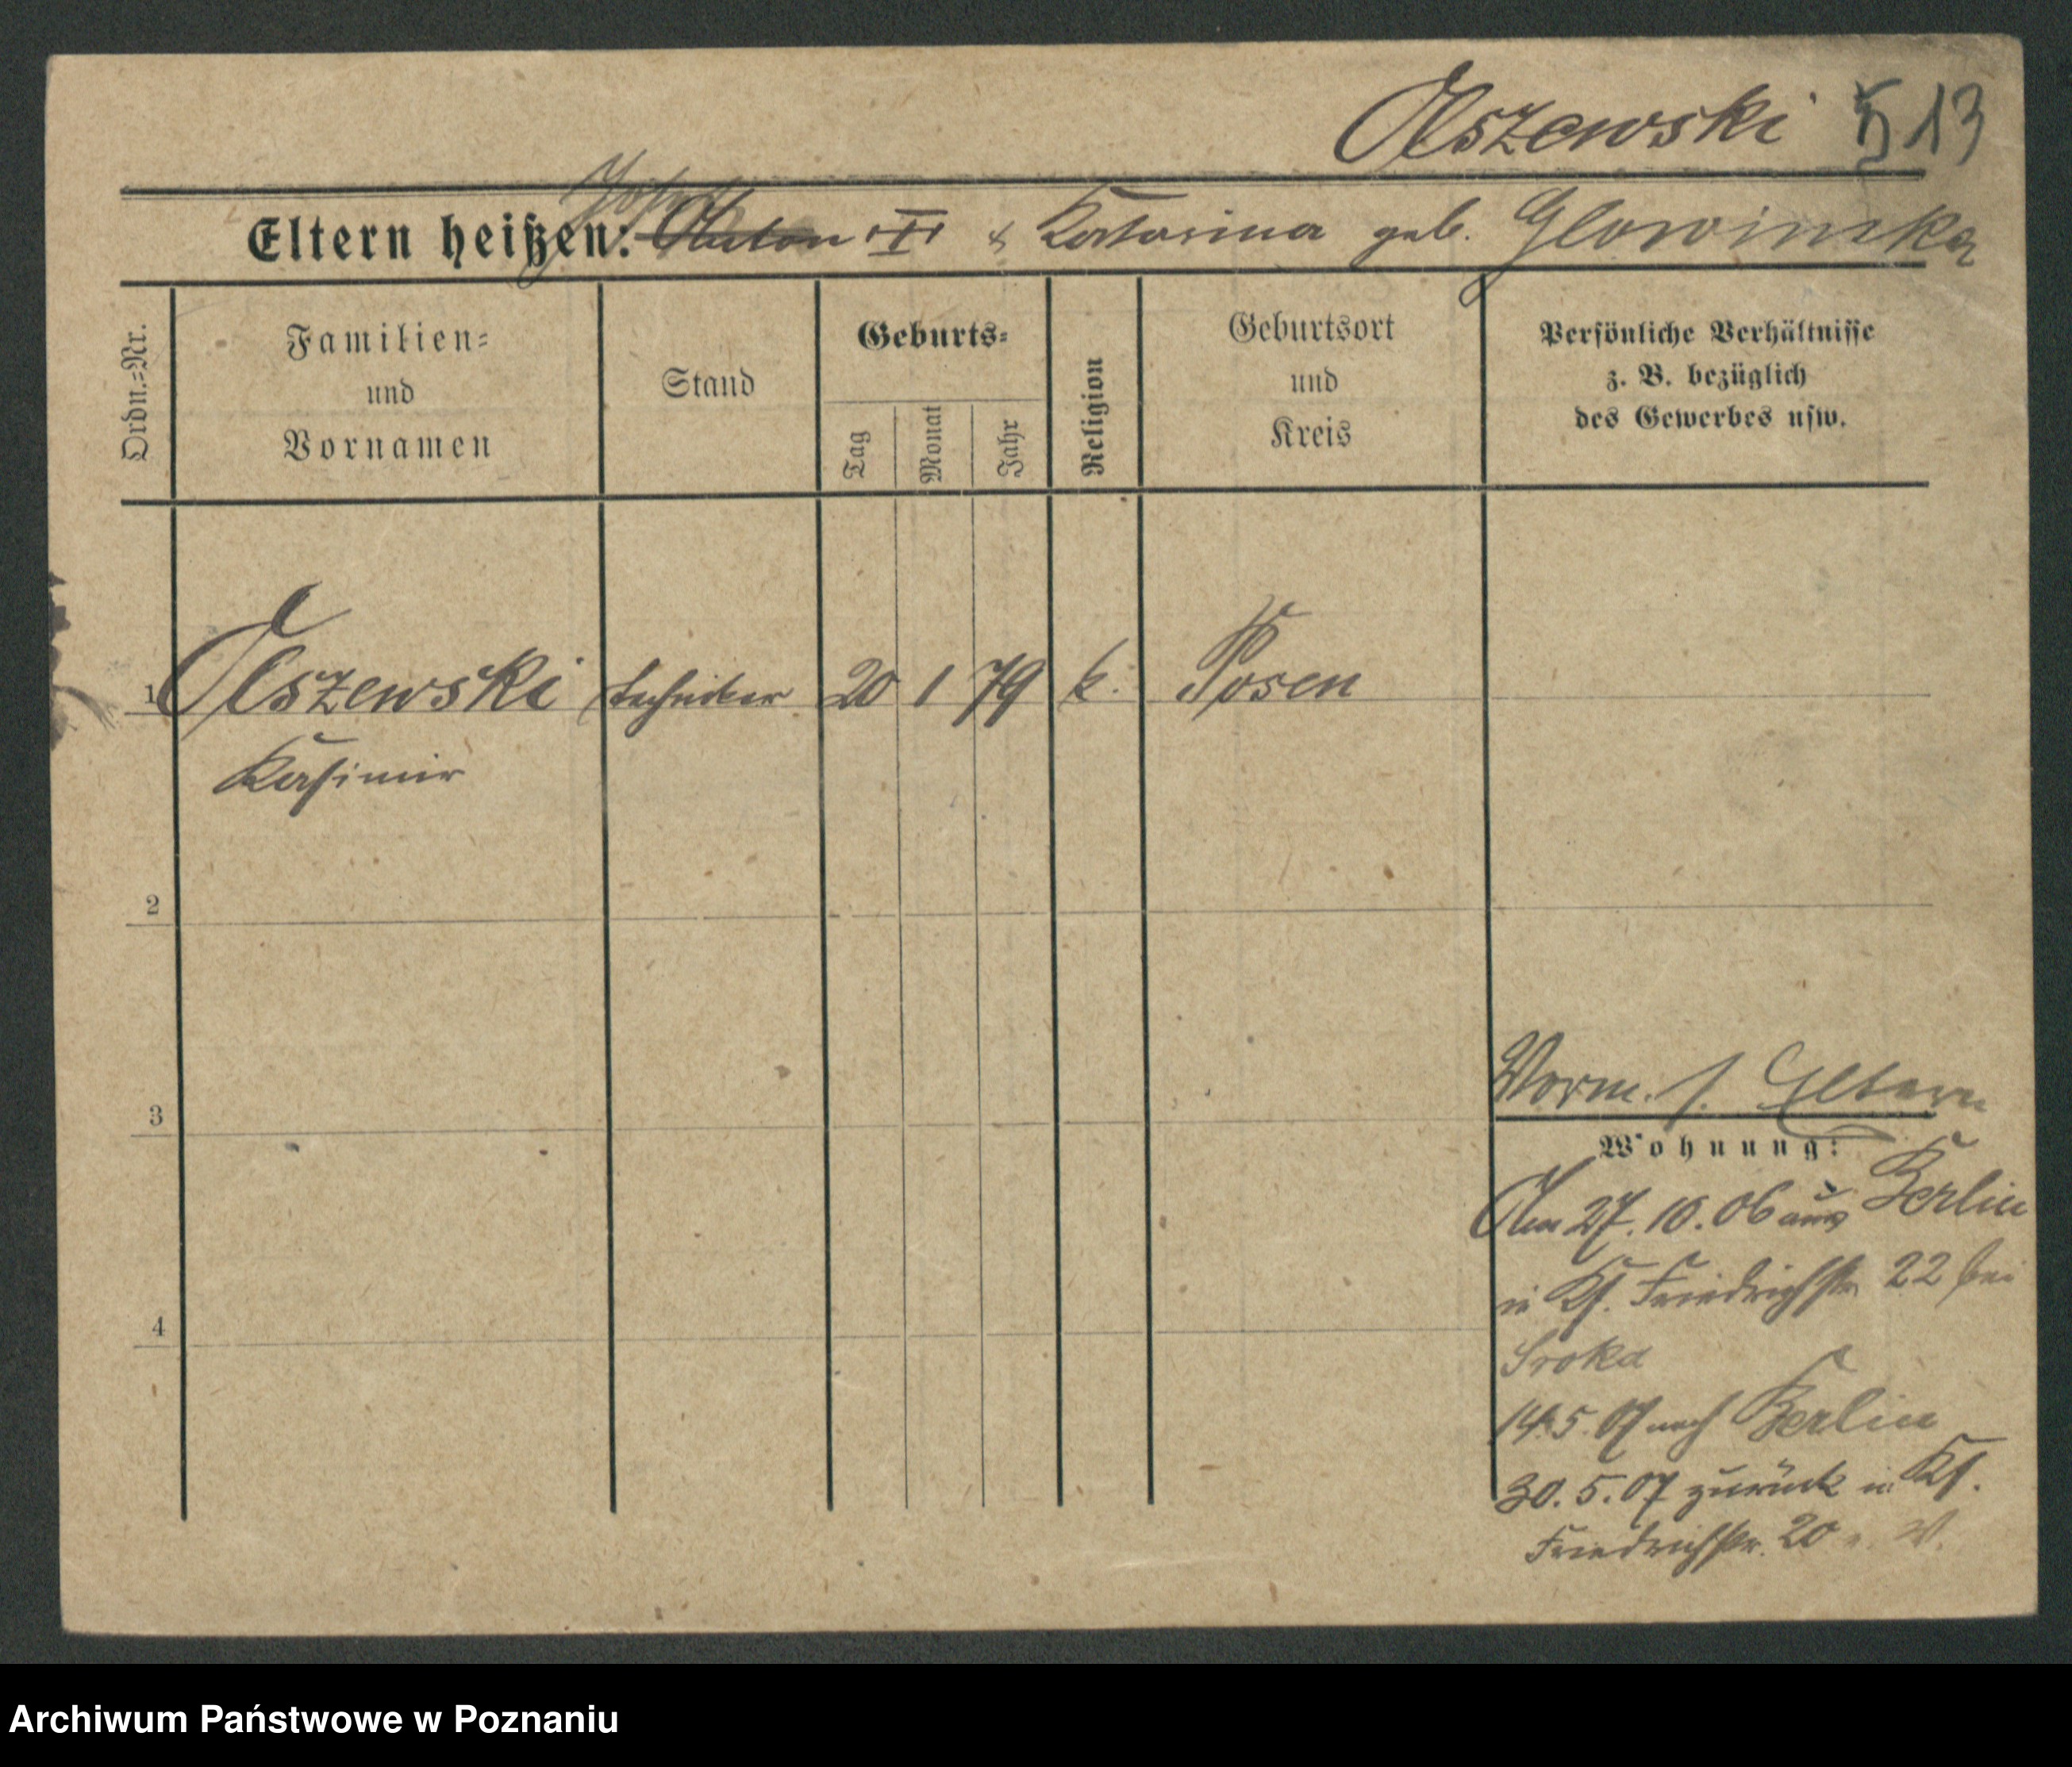 Olszewski 513
Eltern heißen: Josef Anton III & Katarina geb. Glowinska
Ordn.-Nr.
Familien-
und
Vornamen
Stand
Geburts-
Tag
Monat
Jahr
Religion
Geburtsort
und
Kreis
Persönliche Verhältnisse
z. B. bezüglich
des Gewerbes usw.
1 Olszewski Techniker 20 1 79 k. Posen
Kasimir
2
3
4
Vorm. s. Eltern
Wohnung:
Am 27.10.06 aus Berlin
in Kf. Friedrichstr 22 bei
Sroka
14.5.07 nach Berlin
30.5.07 zurück in Kf.
Friedrichstr. 20
Archiwum Państwowe w Poznaniu